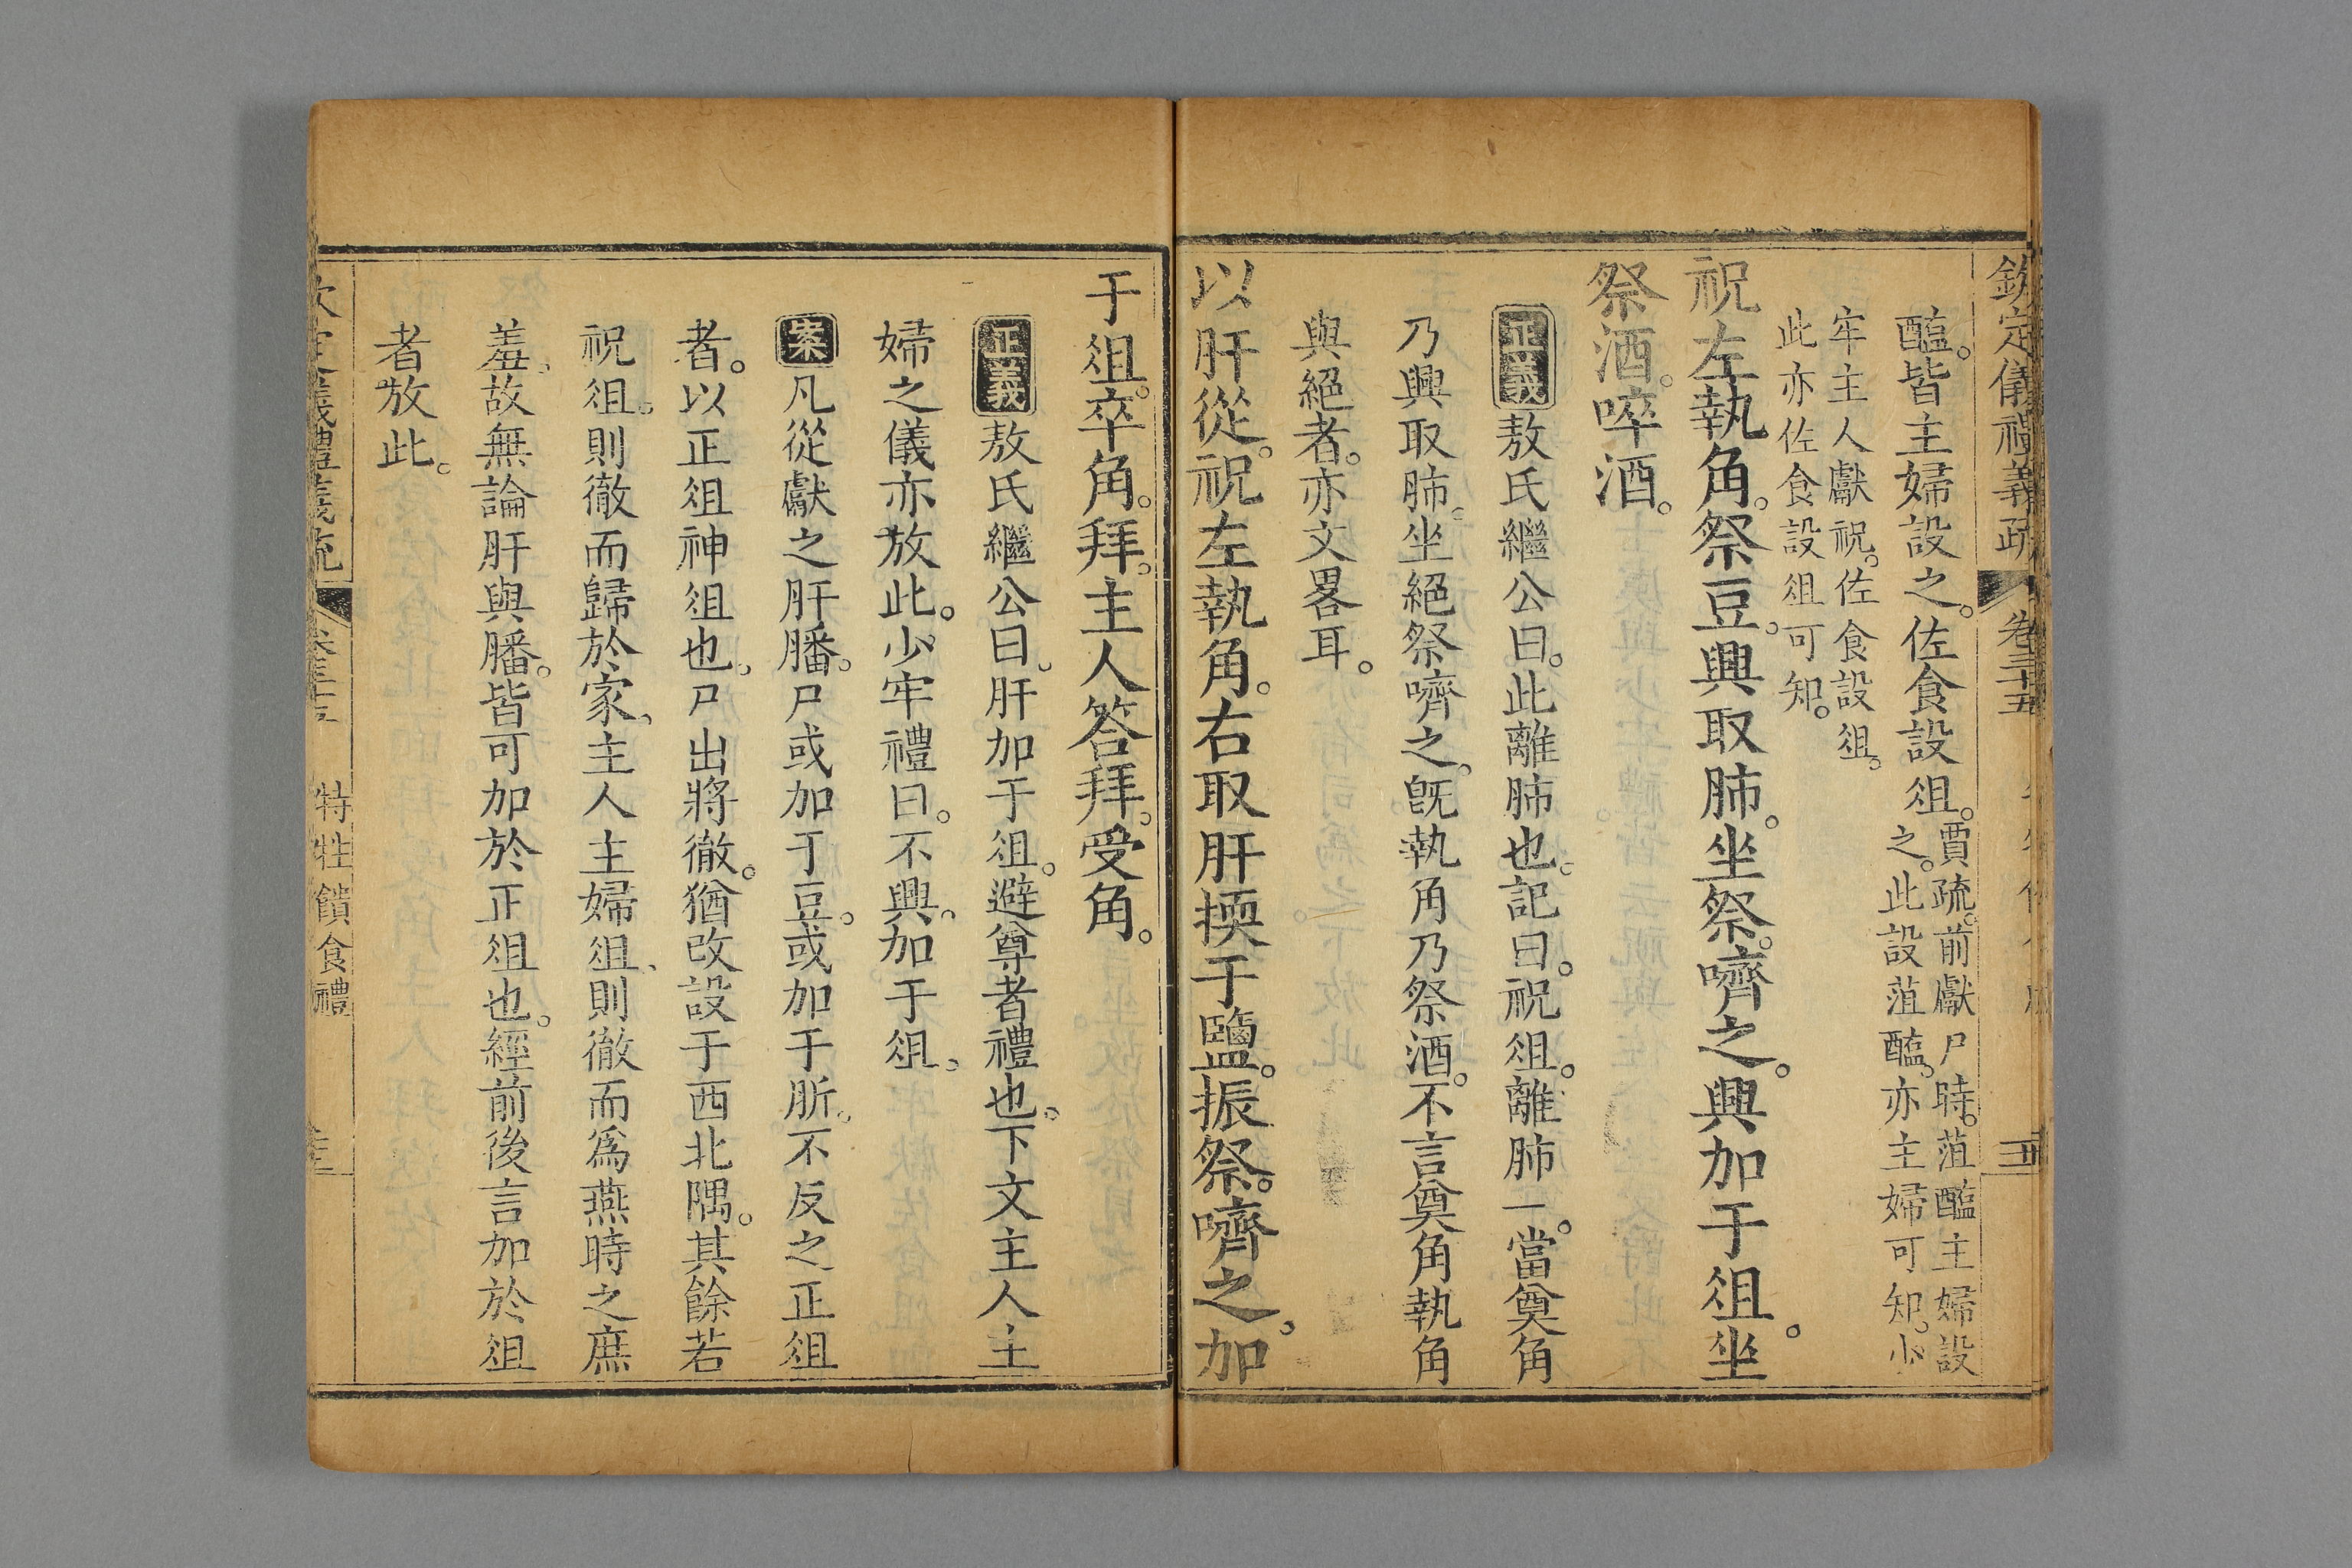 欽定儀禮義疏 卷三十五
醢。皆主婦設之。佐食設俎。賈疏。前獻尸時。菹醢主婦設
之。此設菹醢。亦主婦可知。少
牢主人獻祝。佐食設俎。
此亦佐食設俎可知。
祝左執角。祭豆。興取肺。坐祭。嚌之。興加于俎。坐
祭酒。啐酒。
正義敖氏繼公曰。此離肺也。記曰。祝俎。離肺一。當奠角
乃興取肺。坐絕祭嚌之。旣執角乃祭酒。不言奠角執角
與絕者。亦文畧耳。
以肝從。祝左執角。右取肝㨎于鹽。振祭。嚌之。加
于俎。卒角。拜。主人答拜。受角。
正義敖氏繼公曰、肝加于俎。避尊者禮也。下文主人主
婦之儀亦放此。少牢禮曰。不興。加于俎、
案凡從獻之肝膰。尸或加于豆。或加于肵、不反之正俎
者。以正俎神俎也、尸出將徹。猶改設于西北隅。其餘若
祝俎。則徹而歸於家、主人主婦俎、則徹而為燕時之庶
羞、故無論肝與膰。皆可加於正俎也。經前後言加於俎
者放此。
特牲饋食禮